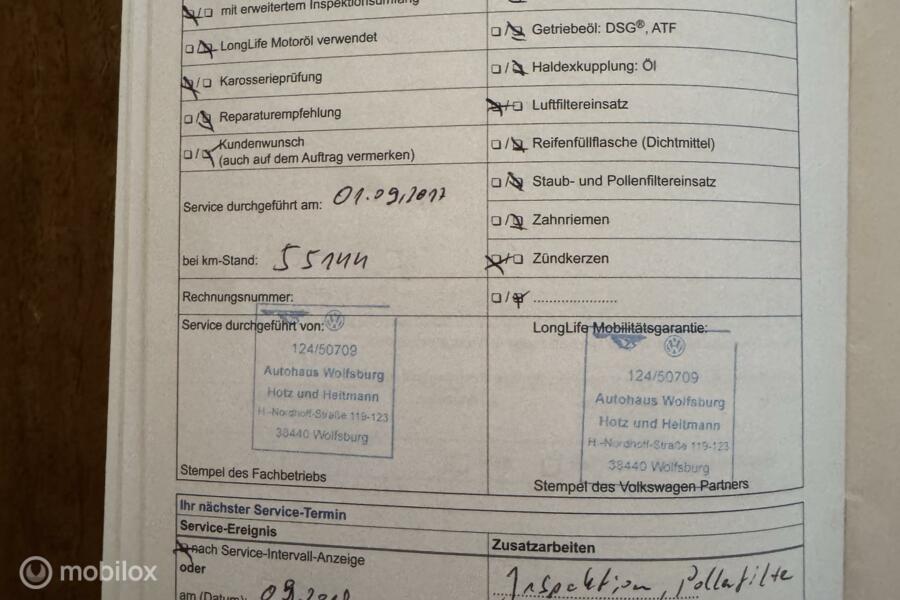 mit erweitertem Inspektionsumfang
LongLife Motoröl verwendet
Karosserieprüfung
Reparaturempfehlung
Kundenwunsch
(auch auf dem Auftrag vermerken)
Service durchgeführt am: 01.09.2017
bei km-Stand: 55144
Getriebeöl: DSG®, ATF
Haldexkupplung: Öl
Luftfiltereinsatz
Reifenfüllflasche (Dichtmittel)
Staub- und Pollenfiltereinsatz
Zahnriemen
Zündkerzen
Rechnungsnummer:
Service durchgeführt von:
124/50709
Autohaus Wolfsburg
Hotz und Heitmann
H.-Nordhoff-Straße 119-123
38440 Wolfsburg
Stempel des Fachbetriebs
LongLife Mobilitätsgarantie:
124/50709
Autohaus Wolfsburg
Hotz und Heitmann
H.-Nordhoff-Straße 119-123
38440 Wolfsburg
Stempel des Volkswagen Partners
Ihr nächster Service-Termin
Service-Ereignis
nach Service-Intervall-Anzeige
oder
am (Datum):
Zusatzarbeiten
Inspektion, Pollenfilter
mobilox